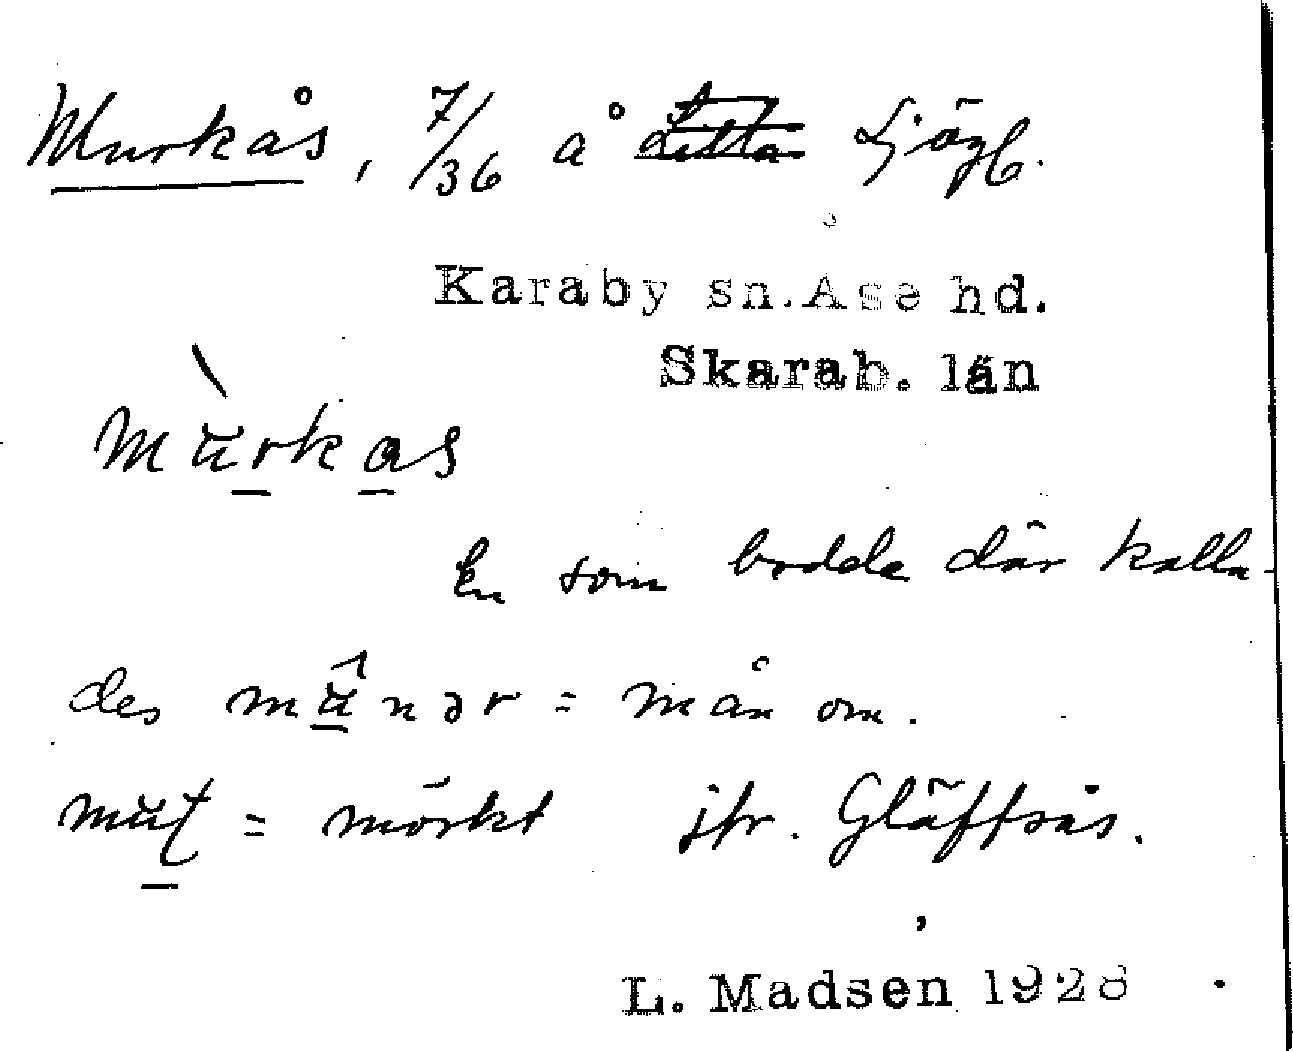 Murkås, 7/36 å Ljögb.
Karaby sn. Åse hd.
Skarab. län
mùrkas
En som bodde där kalla-
des mûnər = mån om.
mut = mörkt jfr. Gläffsås.
L. Madsen 1928